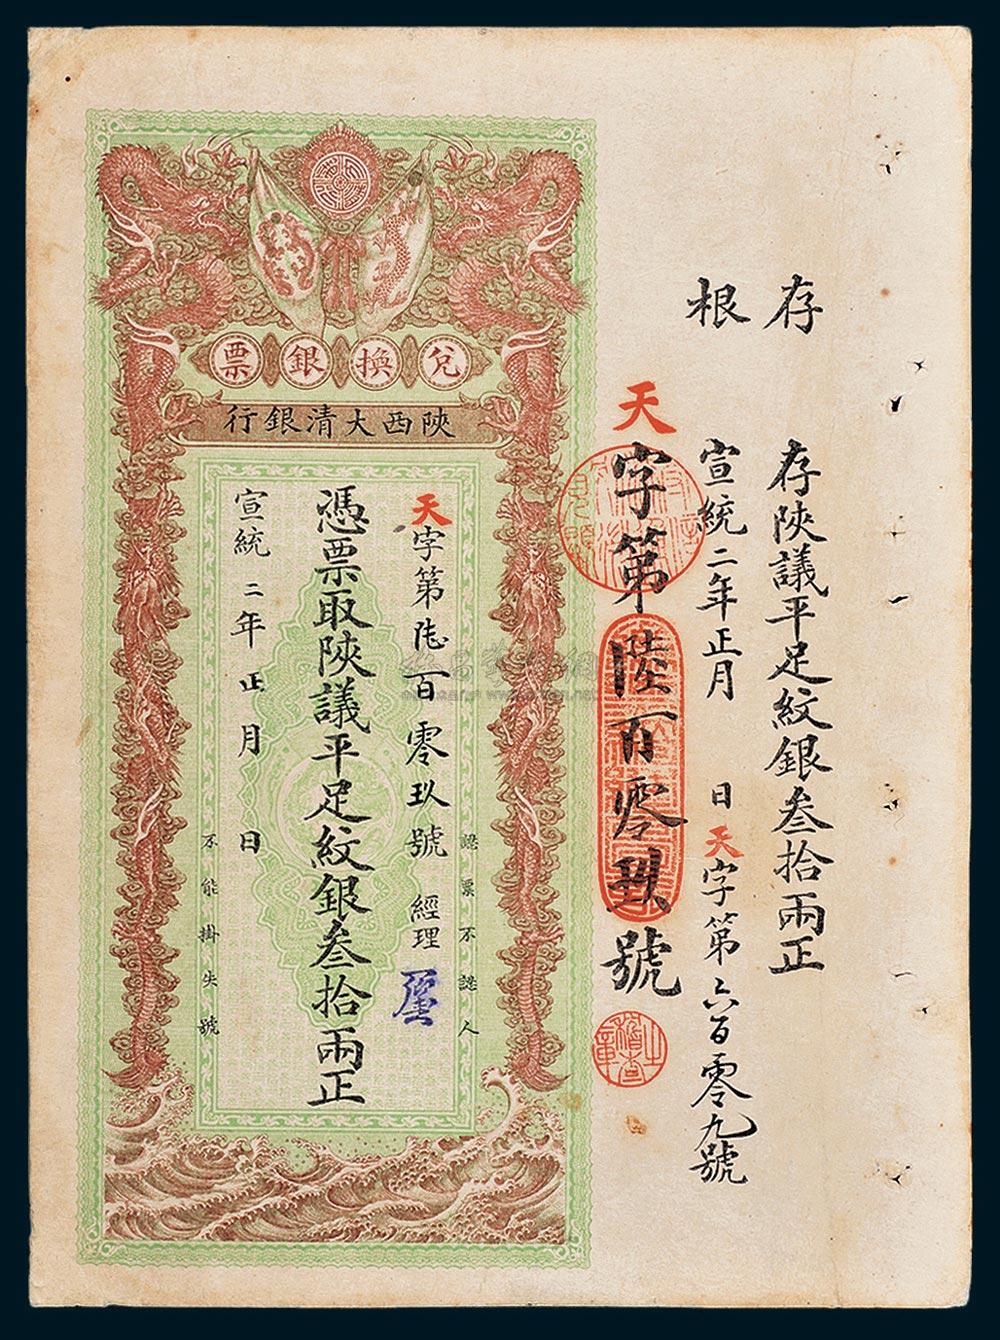 存根
存陝議平足紋銀叁拾兩正
宣統二年正月 日天字第六百零九號
天字第陸百零玖號
稽查
兌換銀票
陝西大清銀行
認票不認人
天字第陸百零玖號 經理
憑票取陝議平足紋銀叁拾兩正
宣統二年正月 日
不能掛失號